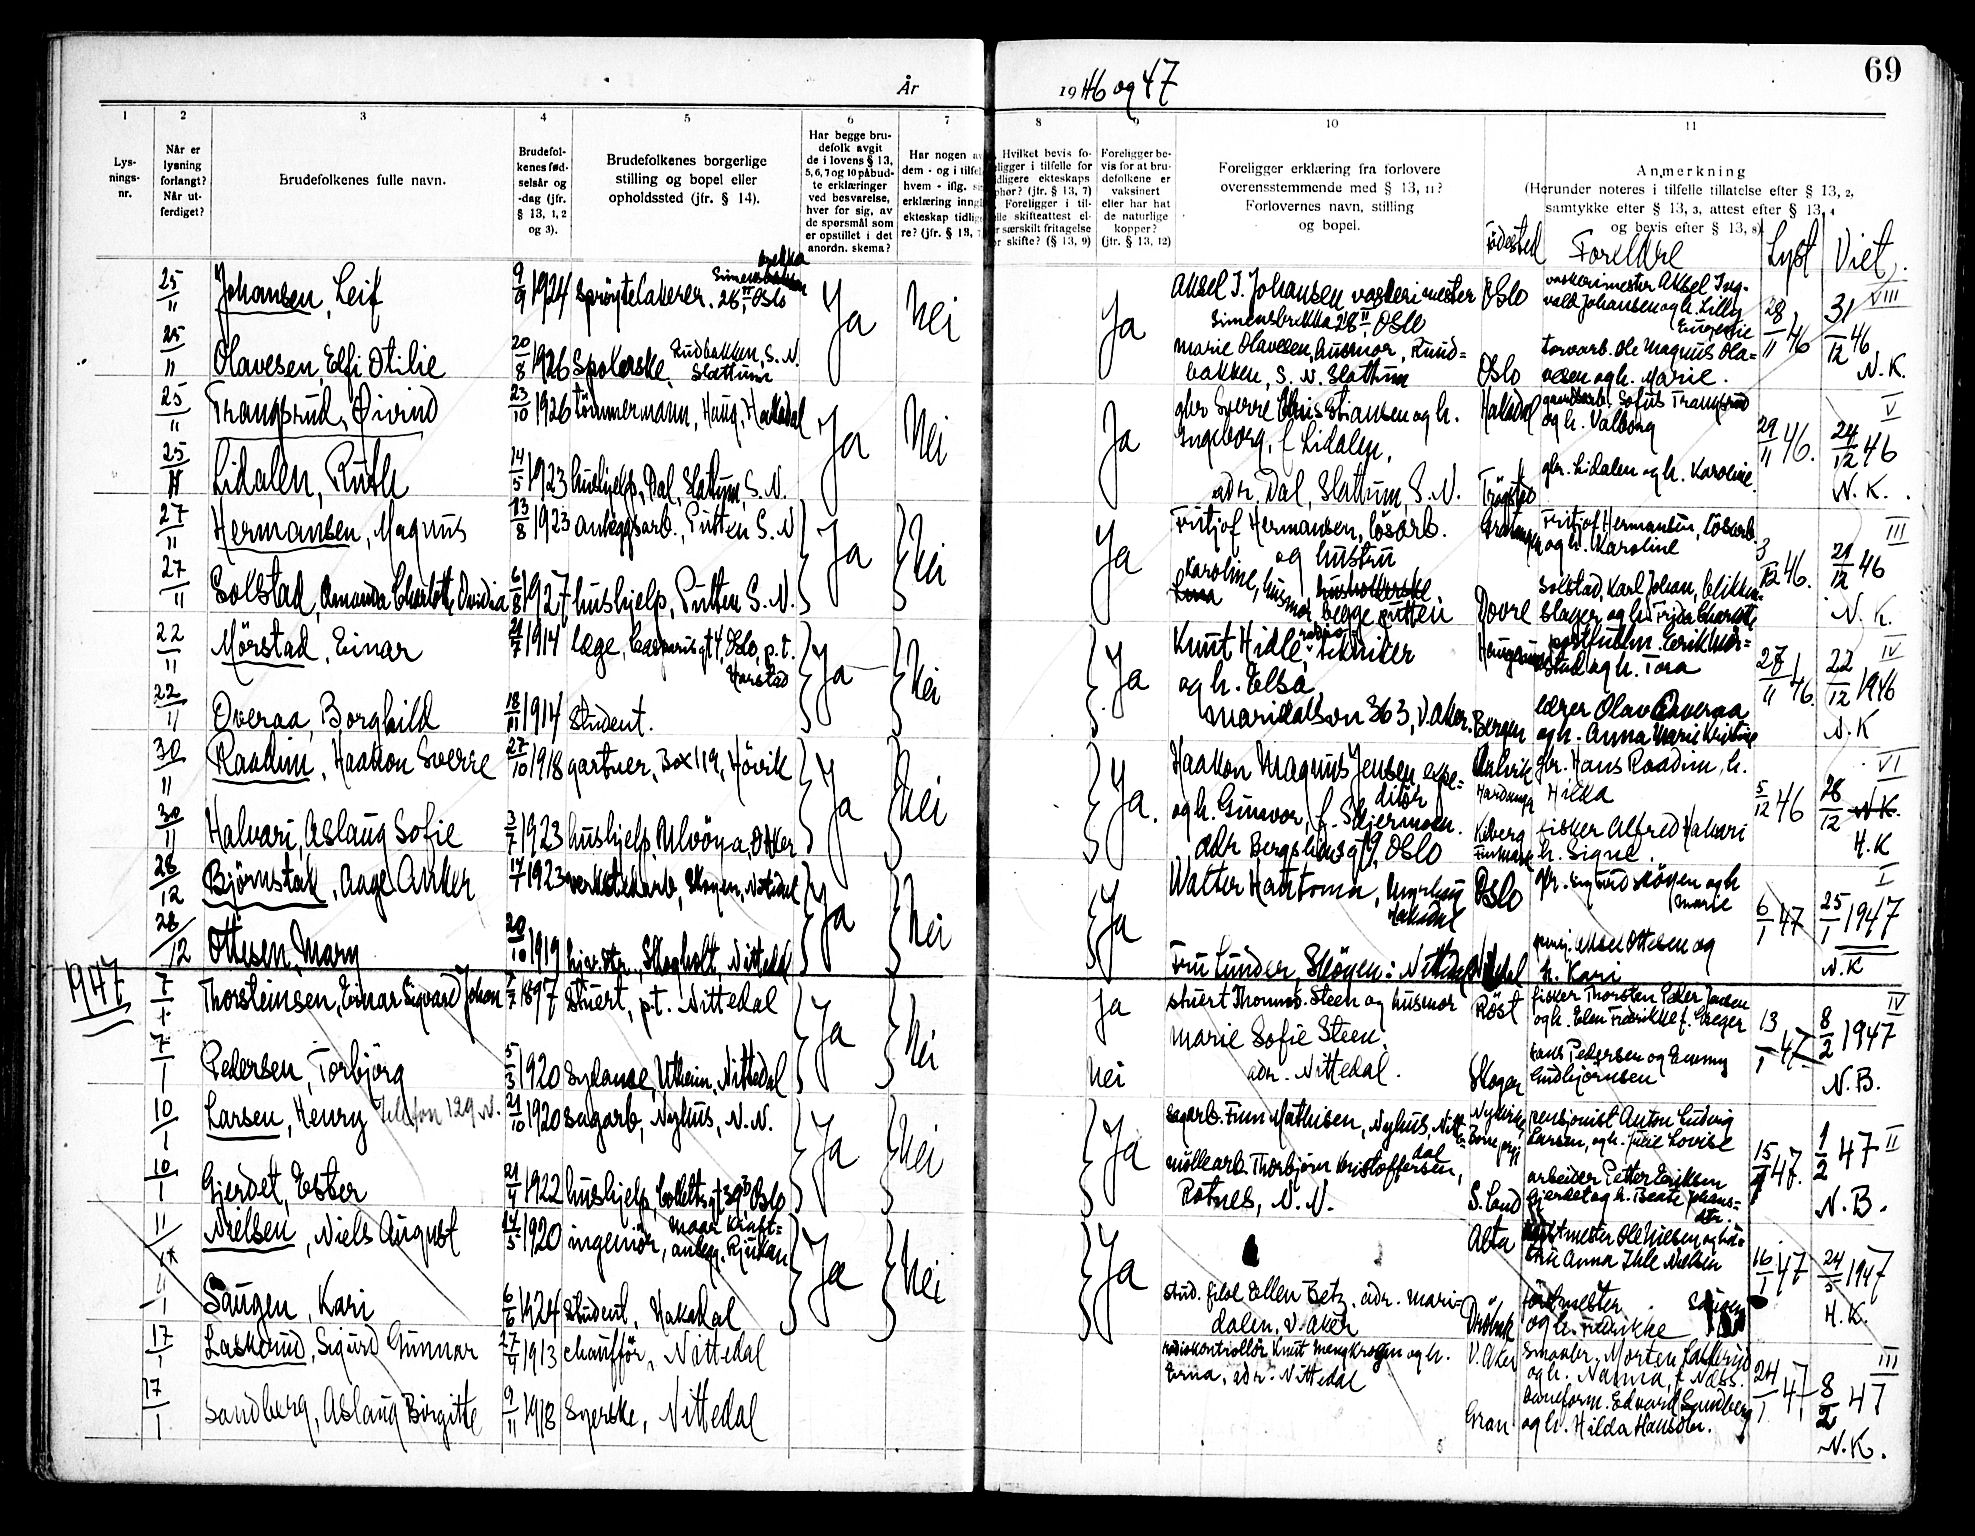 69
År
1946 og 47
1
2
3
4
5
6
7
8
9
10
11
Lys-
nings-
nr.
Når er
lysning
forlangt?
Når ut-
ferdiget?
Brudefolkenes fulle navn.
Brudefol-
kenes fød-
selsår og
-dag (jfr.
§ 13, 1, 2
og 3).
Brudefolkenes borgerlige
stilling og bopel eller
opholdssted (jfr. § 14).
Har begge bru-
defolk avgit
de i lovens § 13,
5, 6, 7 og 10 påbud-
te erklæringer
ved besvarelse,
hver for sig, av
de spørsmål som
er opstillet i det
anordn. skema?
Har nogen a
dem - og i tilfel
hvem - iflg. s
erklæring inng
ekteskap tidlig
re? (jfr. § 13,
Hvilket bevis fo-
ligger i tilfelle for
dligere ekteskaps
phør? (jfr. § 13, 7)
Foreligger i til-
lle skifteattest el-
r særskilt fritagelse
r skifte? (§ 13, 9)
Foreligger be-
vis for at bru-
defolkene er
vaksinert
eller har hat
de naturlige
kopper?
(jfr. § 13, 12)
Foreligger erklæring fra forlovere
overensstemmende med § 13, 11?
Forlovernes navn, stilling
og bopel.
Anmerkning
(Herunder noteres i tilfelle tillatelse efter § 13, 2,
samtykke efter § 13, 3, attest efter § 13, 4
og bevis efter § 13, 8)
Fødested
Foreldre
Lyst
Viet.
25/11 Johansen, Leif 9/9 1924 sprøytelakerer. Simensbrekka 28 II, Oslo Ja Nei Ja
Aksel I. Johansen vaskerimester Oslo vaskerimester Aksel Ing-
Simensbrekka 28 II, Oslo vald Johansen og h. Lilly
Eugenie 28/11 46 31/12 46 VIII
25/11 Olavesen, Elfi Otilie 20/8 1926 Spolerske. Rudbakken, S. N. Slattum
Marie Olavesen, husmor, Rund-
bakken, S. N. Slattum Oslo torvarb. Ole Magnus Ola-
vesen og h. Marie. N. K.
25/11 Trangsrud, Øivind 23/10 1926 tømmermann, Haug, Hakadal Ja Nei Ja
gbr Sverre Christiansen og h. Hakadal Sofus Trangsrud
Ingeborg, f. Lidalen, og h. Valborg 29/11 46. 24/12 46 V
25/11 Lidalen, Ruth 14/5 1923 hushjelp, Dal, Slattum, S. N.
adr. Dal, Slattum, S. N. Trøgstad gbr. Lidalen og h. Karoline. N. K.
27/11 Hermansen, Magnus 13/8 1923 anleggsarb., Putten S. N Ja Nei Ja
Fritjof Hermansen, løsarb. Gratangen Fritjof Hermansen, løsarb.
og hustru og h. Karoline 3/12 46. 21/12 46 III
27/11 Solstad, Amanda Charlotte Ovidia 6/8 1927 hushjelp, Putten S. N.
Karoline, husmor, husholderske
begge putten Dovre Solstad, Karl Johan, blikken-
slager og h. Frida Charlotte N. K.
22/11 Mørstad, Einar 21/7 1914 læge, Casparisgt 4, Oslo, p. t. Harstad Ja Nei Ja
Knut Hidle, radiotekniker Haugesund postfullm. Erik Mør-
og h. Elsa stad og h. Tora 27/11 46. 22/12 1946 IV
22/11 Overaa, Borghild 18/11 1914 Student.
Maridalsvn 363, V. aker. Bergen lærer Olav Overaa
og h. Anna Marie Kristine N. K
30/11 Raadim, Haakon Sverre 27/10 1918 gartner, Box 119, Høvik Ja Nei Ja.
Haakon Magnus Jensen ekspe-
ditør Aalvik Hardanger gbr. Hans Raadim, h.
og h. Gunvor, f. Skjermoen. Hilda 5/12 46 28/12 N. K. VI
30/11 Halvari, Aslaug Sofie 3/7 1923 hushjelp, Ulvøya, O. Aker
adr Bergslandsgt 9, Oslo Kiberg Finnmark fisker Alfred Halvari
h. Signe. H. K
28/12 Bjørnstak, Aage Anker 17/7 1923 verkstedarb, Skogen, Nittedal Ja Nei Ja
Walter Hattoma, Oslo gbr. Sigurd Skøyen og h
Hakadal Marie 6/1 47 25/1 1947 I
28/12 Ottesen, Mary 20/10 1919 Skogholt, Nittedal
Fru Lunder Skøyen i Nittedal Nittedal Ottesen og
h. Kari N. K
1947
7/1 Thorsteinsen, Einar Sigvard Johan 7/7 1897 Stuert, p.t. Nittedal Ja Nei Ja
stuert Thomas. Steen og husmor Røst fisker Thorsten Peder Jensen
Marie Sofie Steen. og h. Elen Fredrikke f. Greger 13/1 47 8/2 1947 IV
7/1 Pedersen, Torbjørg 5/3 1920 Sydame, Utheim, Nittedal Nei
adr. Nittedal. Skogen Hans Pedersen og Emmy
Gudbjørnsen N. B.
10/1 Larsen, Henry Telefon 129 N. 21/10 1920 sagarb, Nyhus, N. N. Ja Nei Ja
sagarb. Finn Mathisen, Nyhus, Nitt-
dal Nykirke, Borre pgj pensjonist Anton Ludvig
møllearb. Thorbjørn Kristoffersen, Larsen, og h. Julie Lovise 15/1 47. 1/2 47 II
10/1 Gjerdet, Ester 21/4 1922 hushjelp, Colletts gt 39 B Oslo
Rotnes, N. N. S. Land arbeider Petter Eriksen
Gjerdet og h. Beate Johans-
dtr N. B.
11/1 Nielsen, Niels August 14/5 1920 ingeniør, Maar Kraft-
anlegg. Rjukan Ja Nei Ja
Alta Ole Nielsen og hu-
stru Anna Ihle Nielsen 16/1 47 24/5 1947
11/1 Saugen, Kari 6/6 1924 Student, Hakadal
stud. filol Ellen Betz. adr. Mari-
dalen, V. Aker Drøbak forstmester Saugen
og h. Fredrikke H. K.
17/1 Laskerud, Sigurd Gunnar 27/4 1913 chauffør, Nittedal
radiokontrollør Knut Mengkrogen og h. V. Aker Smaabr. Morten Laskerud
Erna, adr. Nittedal og h. Nanna, f. Næss. 24/1 47 8/2 47 III
17/1 Sandberg, Aslaug Birgitte 9/11 1918 Syerske, Nittedal
Gran baneform. Edvard Sandberg
og h. Hilda Hansdtr. N. K.